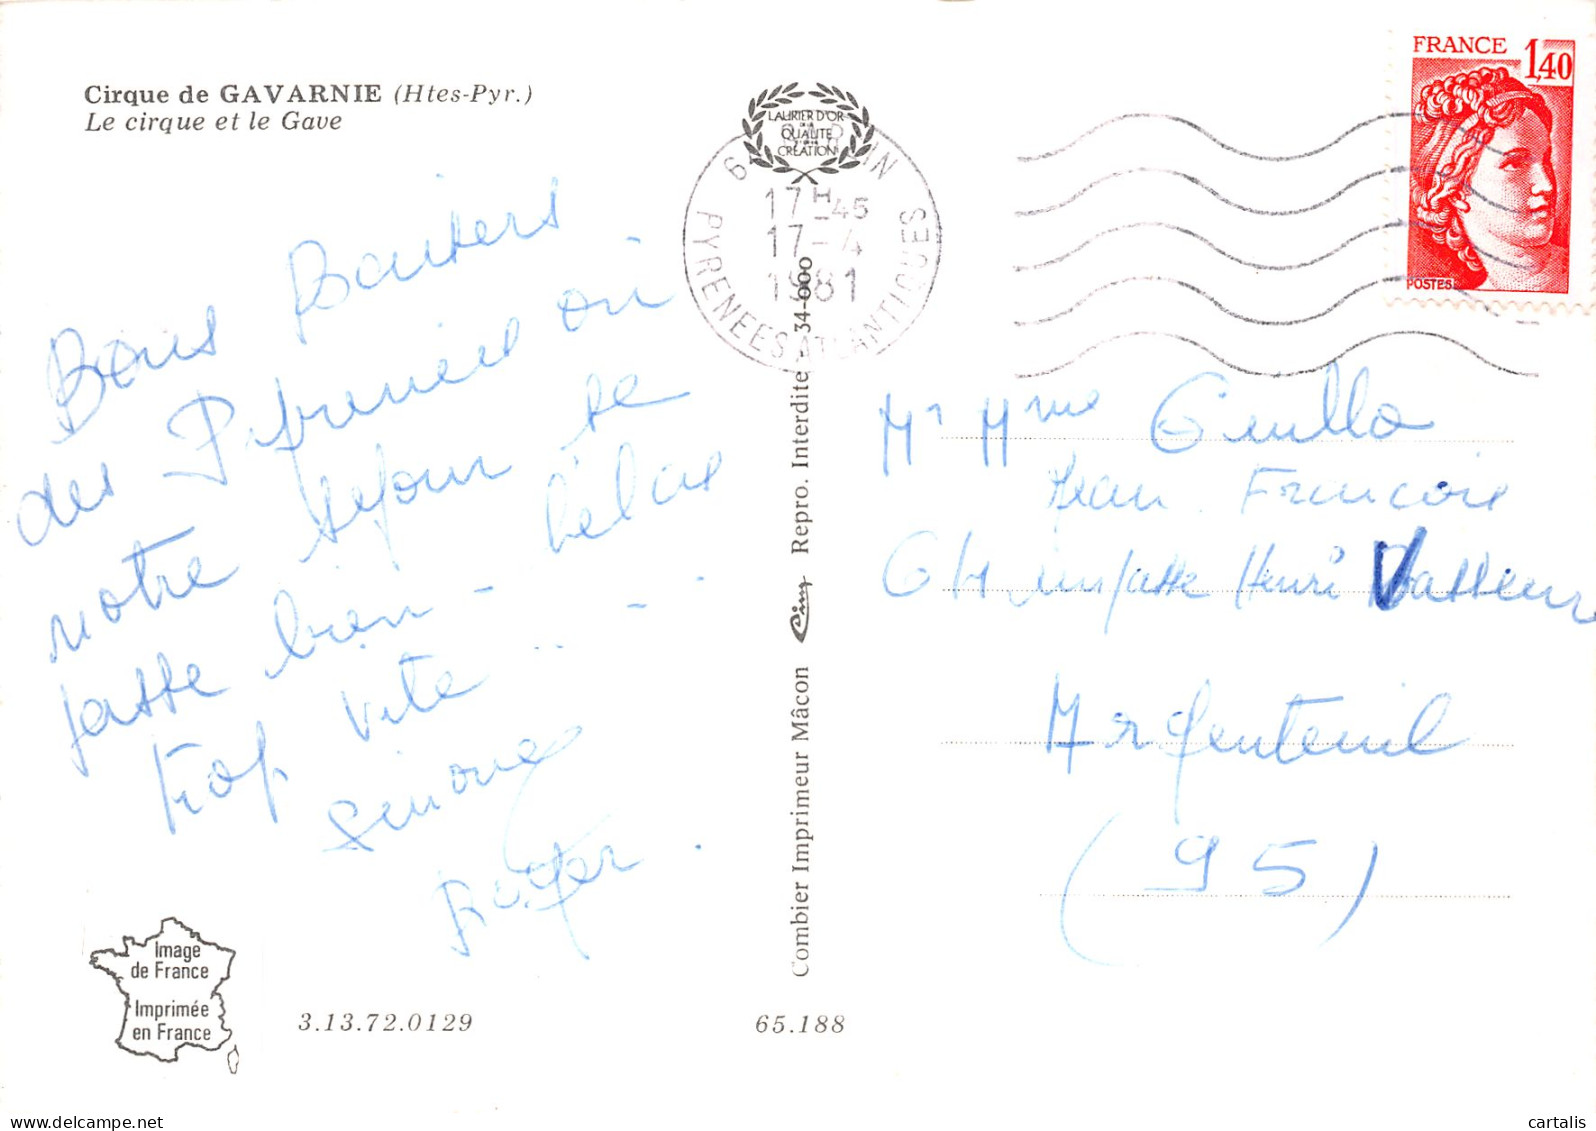 Cirque de GAVARNIE (Htes-Pyr.)
Le cirque et le Gave
Bons Baisers
des Pyrenees où
notre séjour se
passe bien - hélas
trop vite ... - -
Simone
Roger.
Image
de France
Imprimée
en France
3.13.72.0129
65.188
Combier Imprimeur Mâcon Repro. Interdite 34-000
LAURIER D'OR
DE LA
QUALITE
CREATION
17H-45
17-4
1981
PYRENEES ATLANTIQUES
FRANCE 1,40
POSTES
Mr Mme Guillo
Jean Francois
Henri Vasseur
Argenteuil
(95)
cartalis